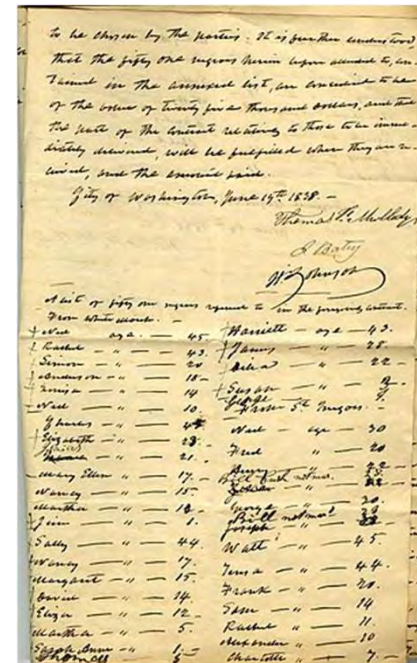 to be chosen by the parties. It is further understood
that the fifty one negroes herein before alluded to, con-
tained in the annexed list, are considered to be
of the value of twenty five thousand dollars, and that
the part of the contract relatively to those to be imme-
diately delivered, will be fulfilled when they are re-
ceived, and the amount paid.
City of Washington, June 19th 1838. —
Thomas F. Mulledy
J. Batey
H Johnson
A list of fifty one negroes referred to in the foregoing contract.
From White Marsh. —
Ned age — 45.
Rachel — " — 43.
Simon — " — 20
Anderson — " — 18 —
Louisa — " — 14
Ned — " — 10
Charles — "
Elizabeth — " — 23.
— " — 21 —
Mary Ellen — " — 17 —
Nancy — " — 15
Martha — " — 12 —
Jim — " — 1.
Sally — " — 44
Nancy — " — 17.
Margaret — " — 15.
David — " — 14.
Eliza — " — 12
Martha — " — 5.
Sarah Anne — " — 1 —
Thomas 5
Harriett — age — 43.
James — " — 28.
— " — 22 —
Susan — "
George
From St Inigoes —
Ned — age — 30
Fred — " — 20
Bill
George — " 20.
Bill
Joseph — "
Watt — 45
Teresa — " — 44.
Frank — " — 20.
Sam — " — 14
Rachel — " — 11
Alexander — " — 10
Charlotte — " — 7 —